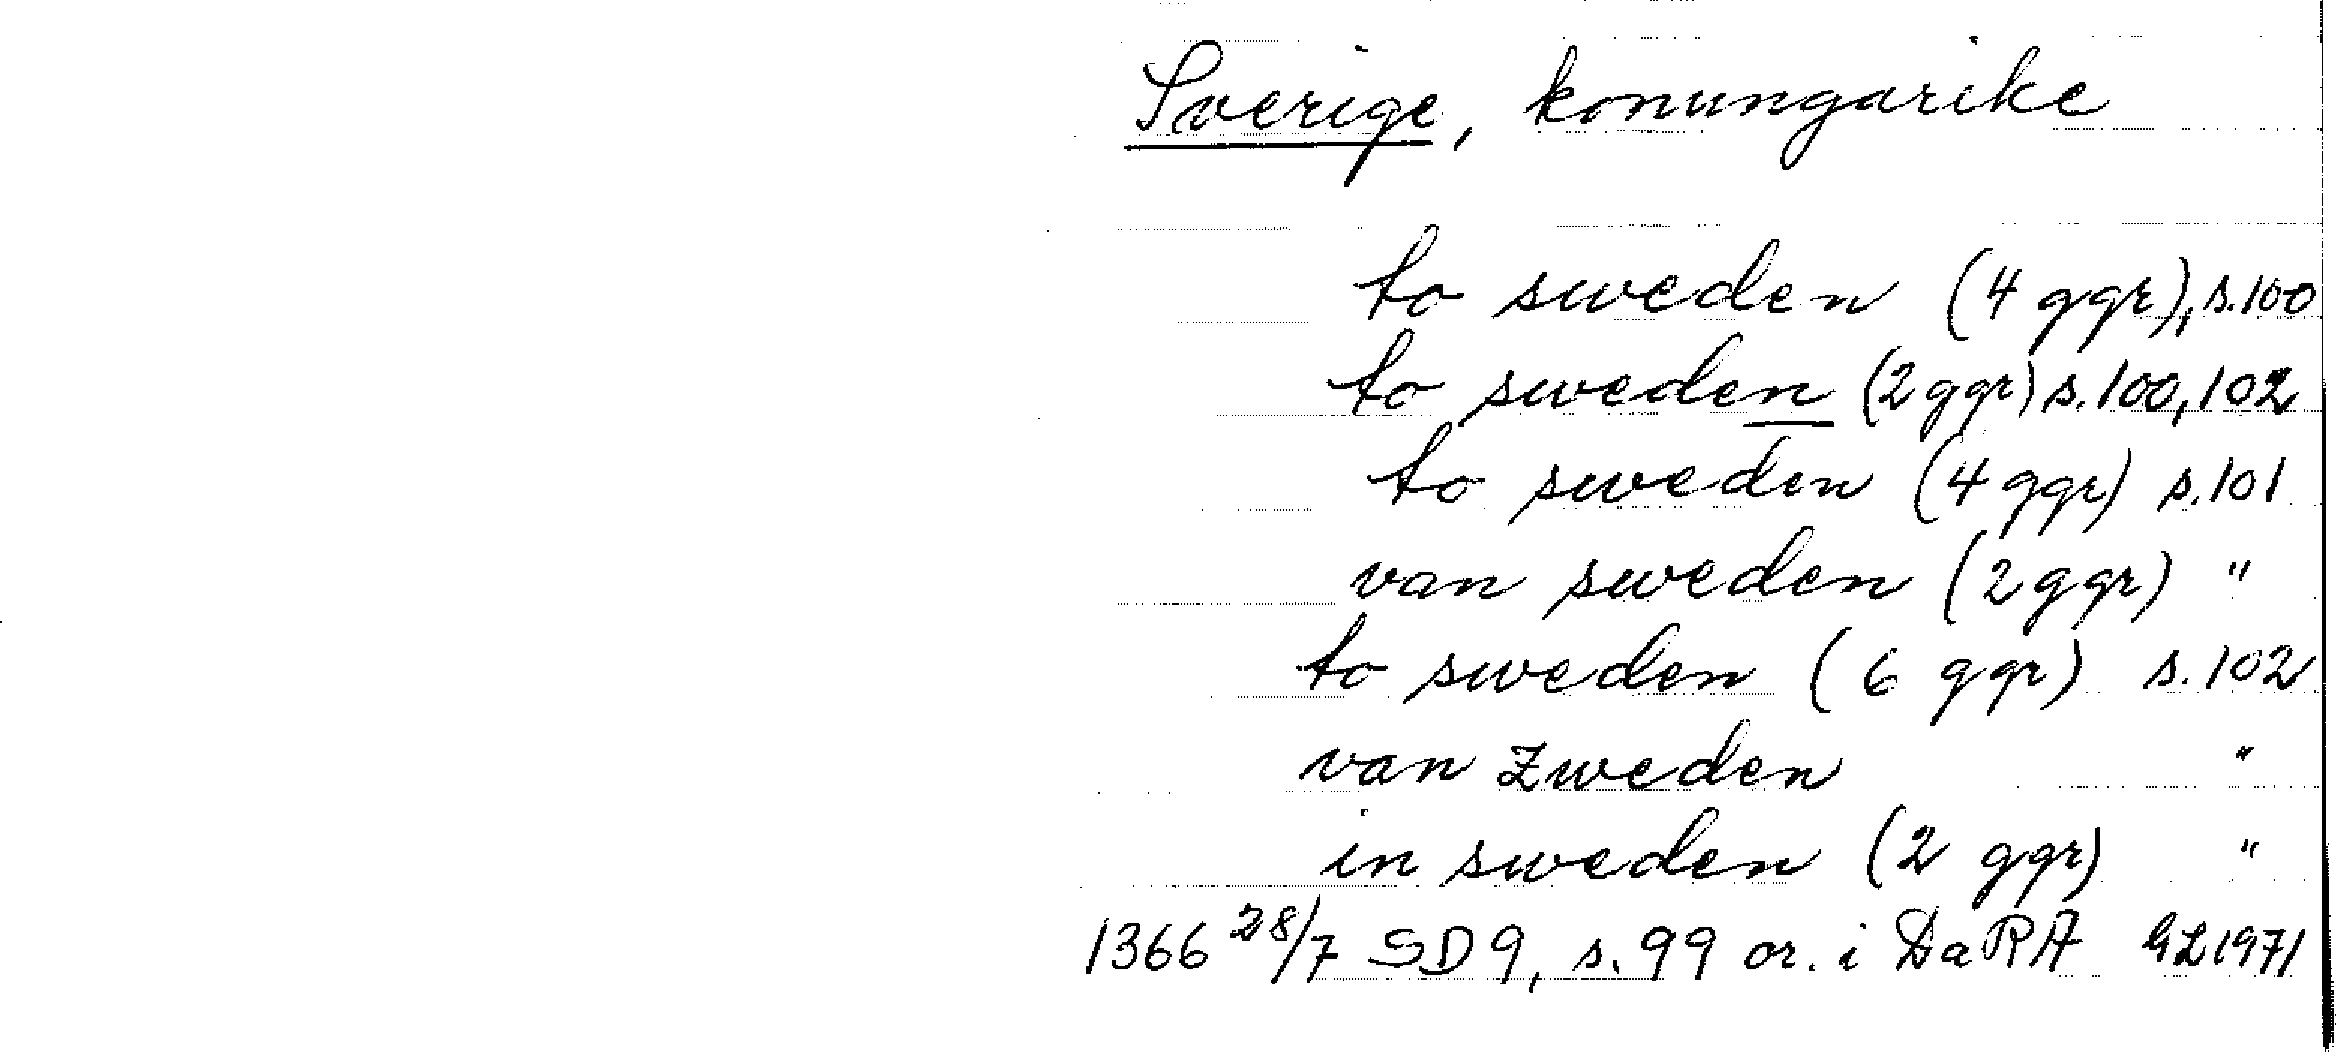 Sverige, konungarike
to sweden (4 ggr), s.100
to sweden (2 ggr) s.100, 102
to sweden (4 ggr) s.101
van sweden (2 ggr) "
to sweden (6 ggr) s.102
van Zweden "
in sweden (2 ggr) "
1366 28/7 SD 9, s. 99 or. i DaRA GL 1971